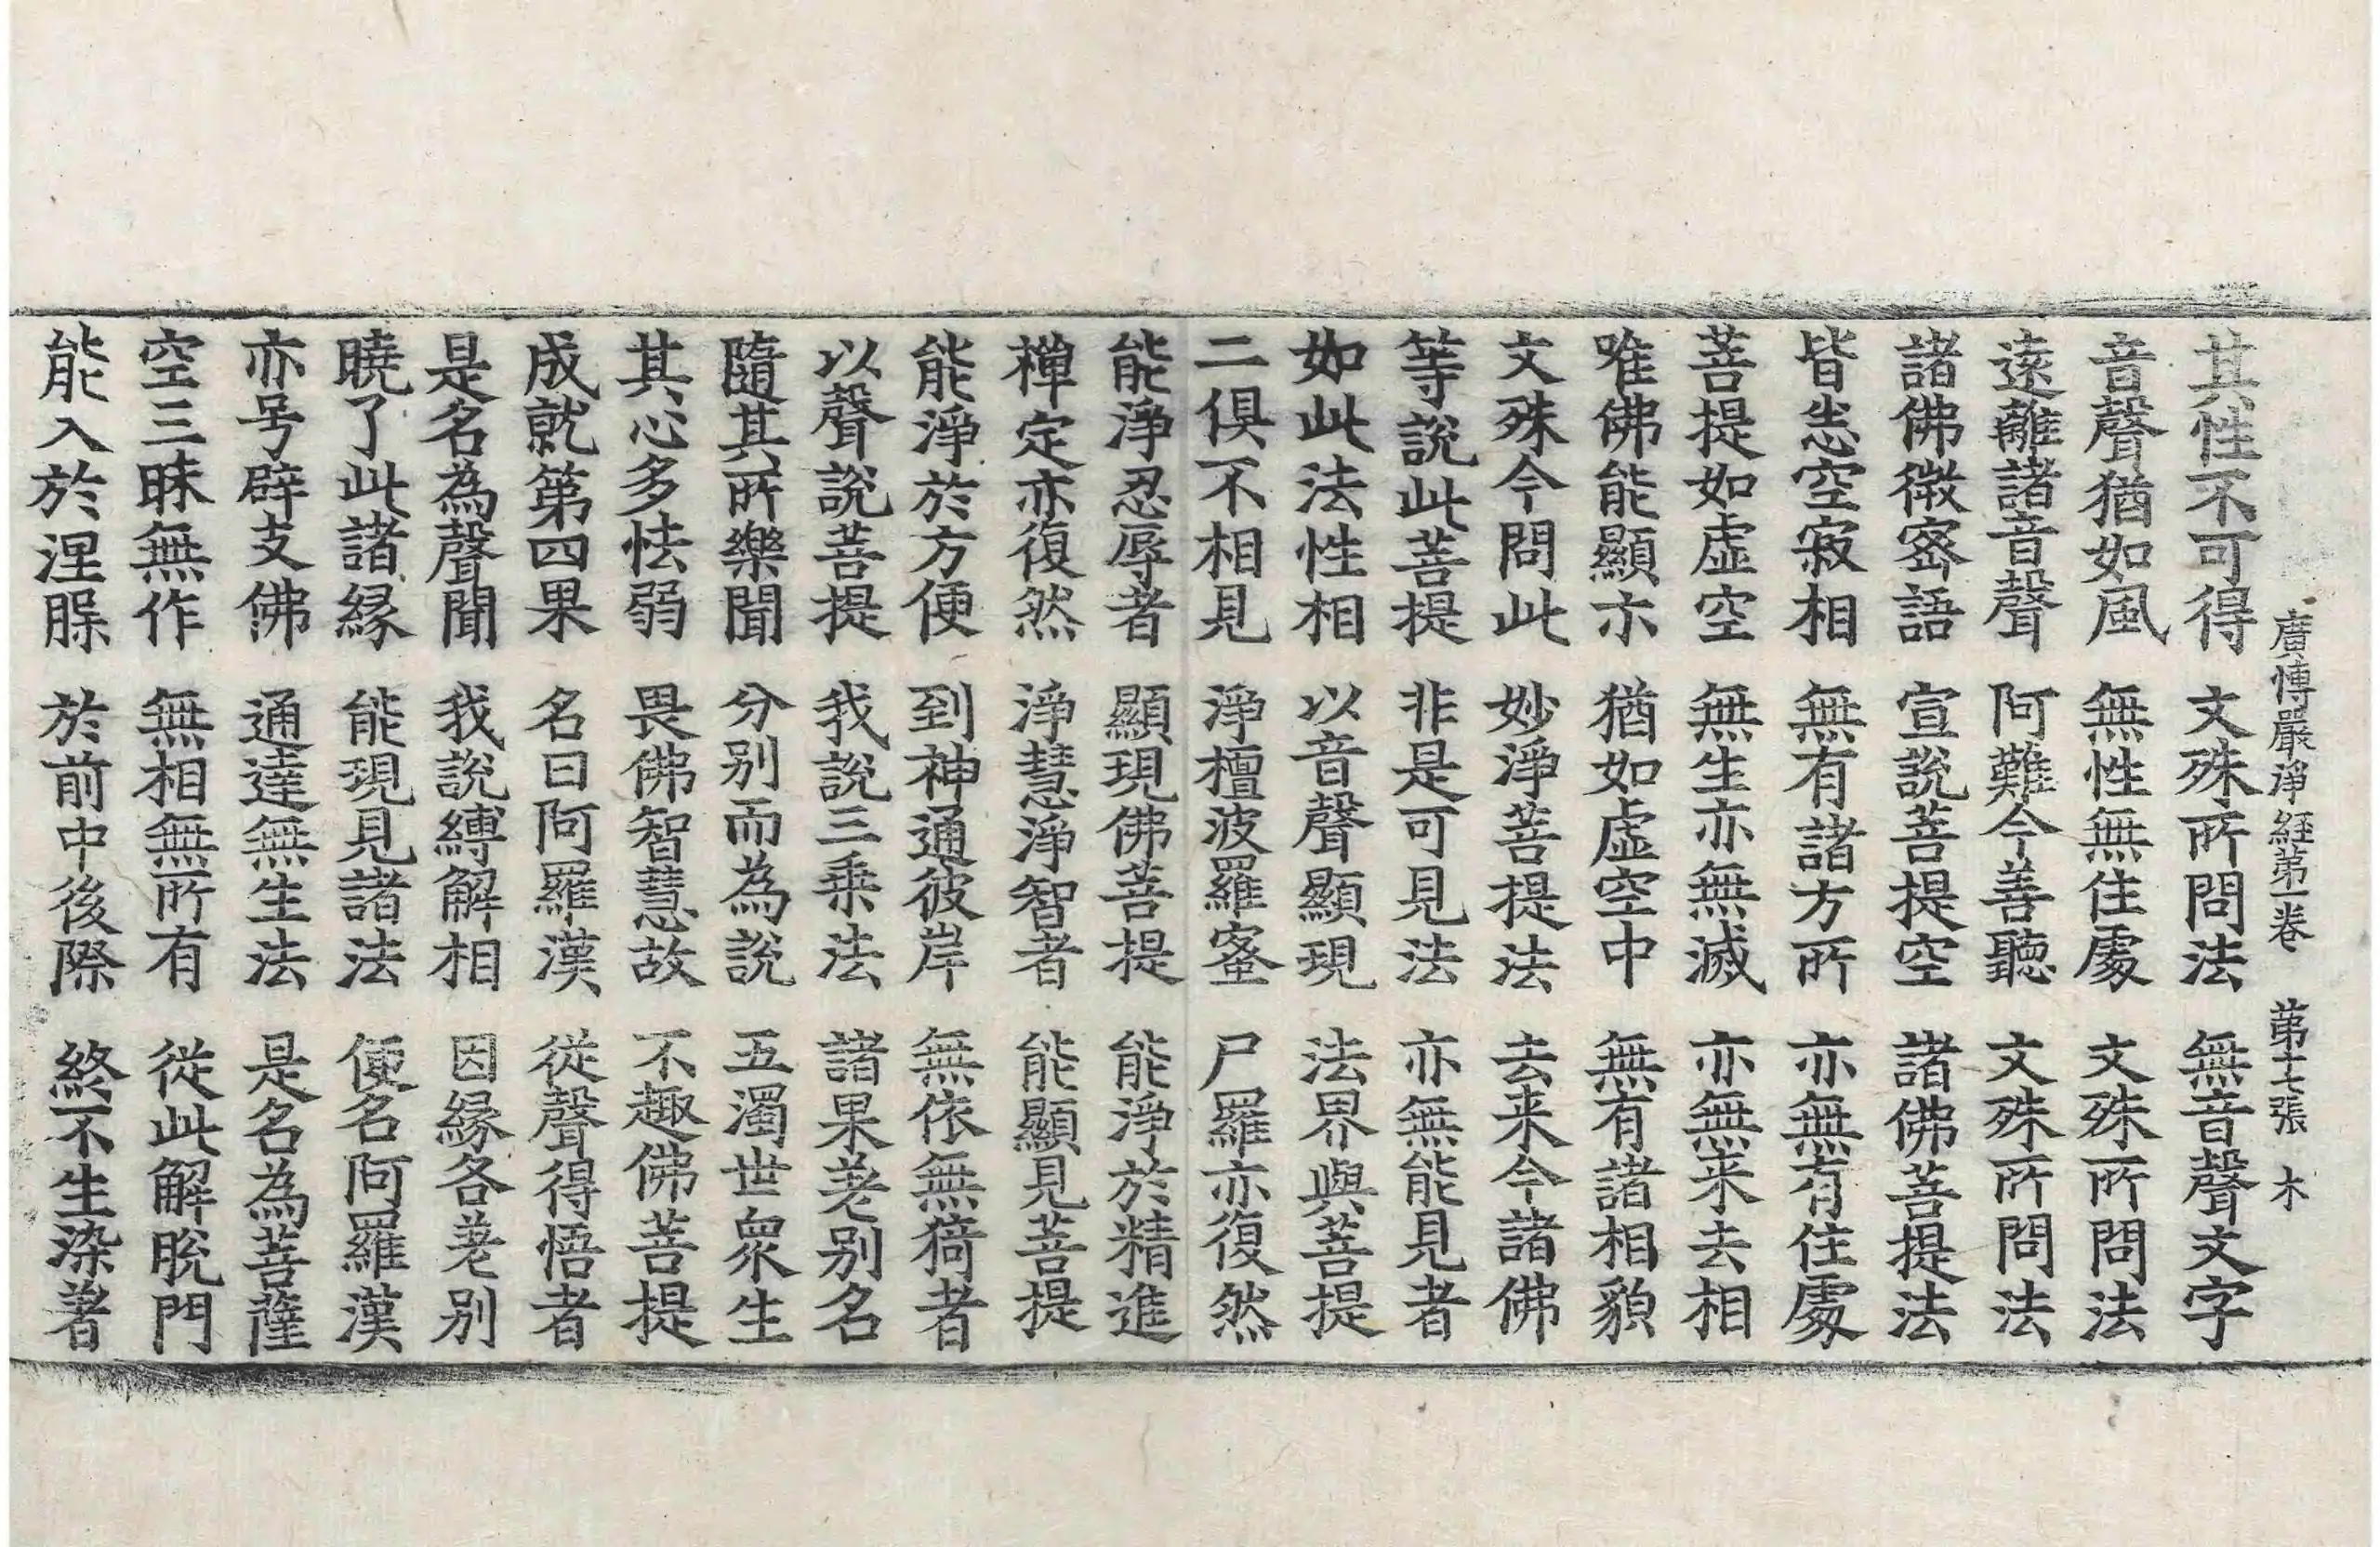 廣博嚴淨経第一卷 第十七張 木
其性不可得 文殊所問法 無音聲文字
音聲猶如風 無性無住處 文殊所問法
遠離諸音聲 阿難今善聽 文殊所問法
諸佛微宻語 宣說菩提空 諸佛菩提法
皆悉空寂相 無有諸方所 亦無有住處
菩提如虛空 無生亦無滅 亦無来去相
唯佛能顯示 猶如虛空中 無有諸相貌
文殊今問此 妙淨菩提法 去来今諸佛
等說此菩提 非是可見法 亦無能見者
如此法性相 以音聲顯現 法界與菩提
二俱不相見 淨檀波羅蜜 尸羅亦復然
能淨忍辱者 顯現佛菩提 能淨於精進
禪定亦復然 淨慧淨智者 能顯見菩提
能淨於方便 到神通彼岸 無依無猗者
以聲說菩提 我說三乗法 諸果差别名
隨其所樂聞 分别而為說 五濁世衆生
其心多怯弱 畏佛智慧故 不趣佛菩提
成就第四果 名曰阿羅漢 從聲得悟者
是名為聲聞 我說縛解相 因縁各差别
曉了此諸縁 能現見諸法 便名阿羅漢
亦号辟支佛 通達無生法 是名為菩薩
空三昧無作 無相無所有 從此解脫門
能入於涅槃 於前中後際 終不生染著